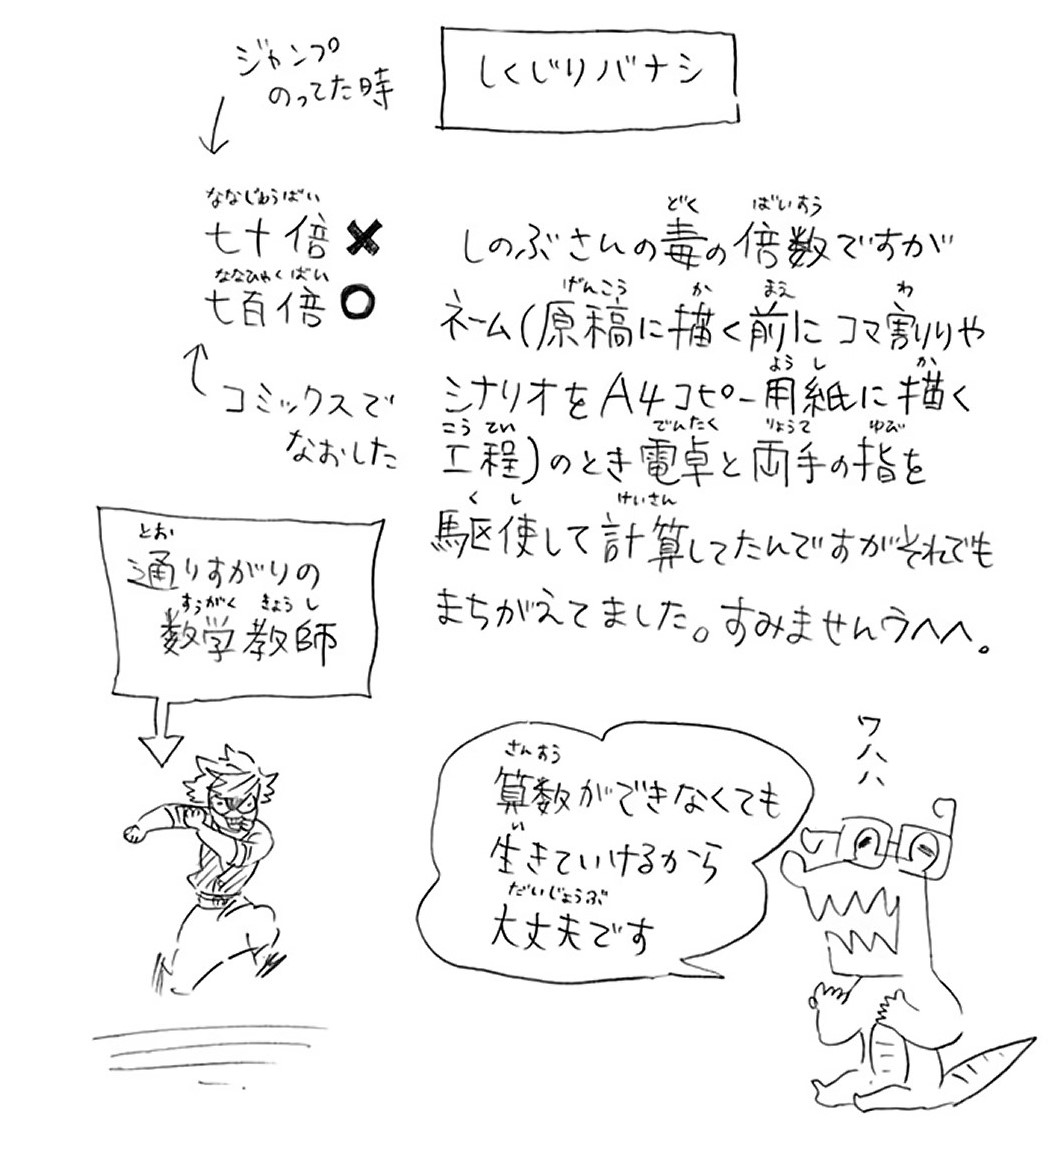 しくじりバナシ
ジャンプ
のってた時
ななじゅうばい
七十倍✖
ななひゃくばい
七百倍〇
コミックスで
なおした
どく ばいすう
しのぶさんの毒の倍数ですが
げんこう か まえ わ
ネーム(原稿に描く前にコマ割りや
ようし か
シナリオをA4コピー用紙に描く
こうてい でんたく りょうて ゆび
工程)のとき電卓と両手の指を
くし けいさん
駆使して計算してたんですがそれでも
まちがえてました。すみませんウヘヘ。
とお
通りすがりの
すうがく きょうし
数学教師
ワハハ
さんすう
算数ができなくても
い
生きていけるから
だいじょうぶ
大丈夫です